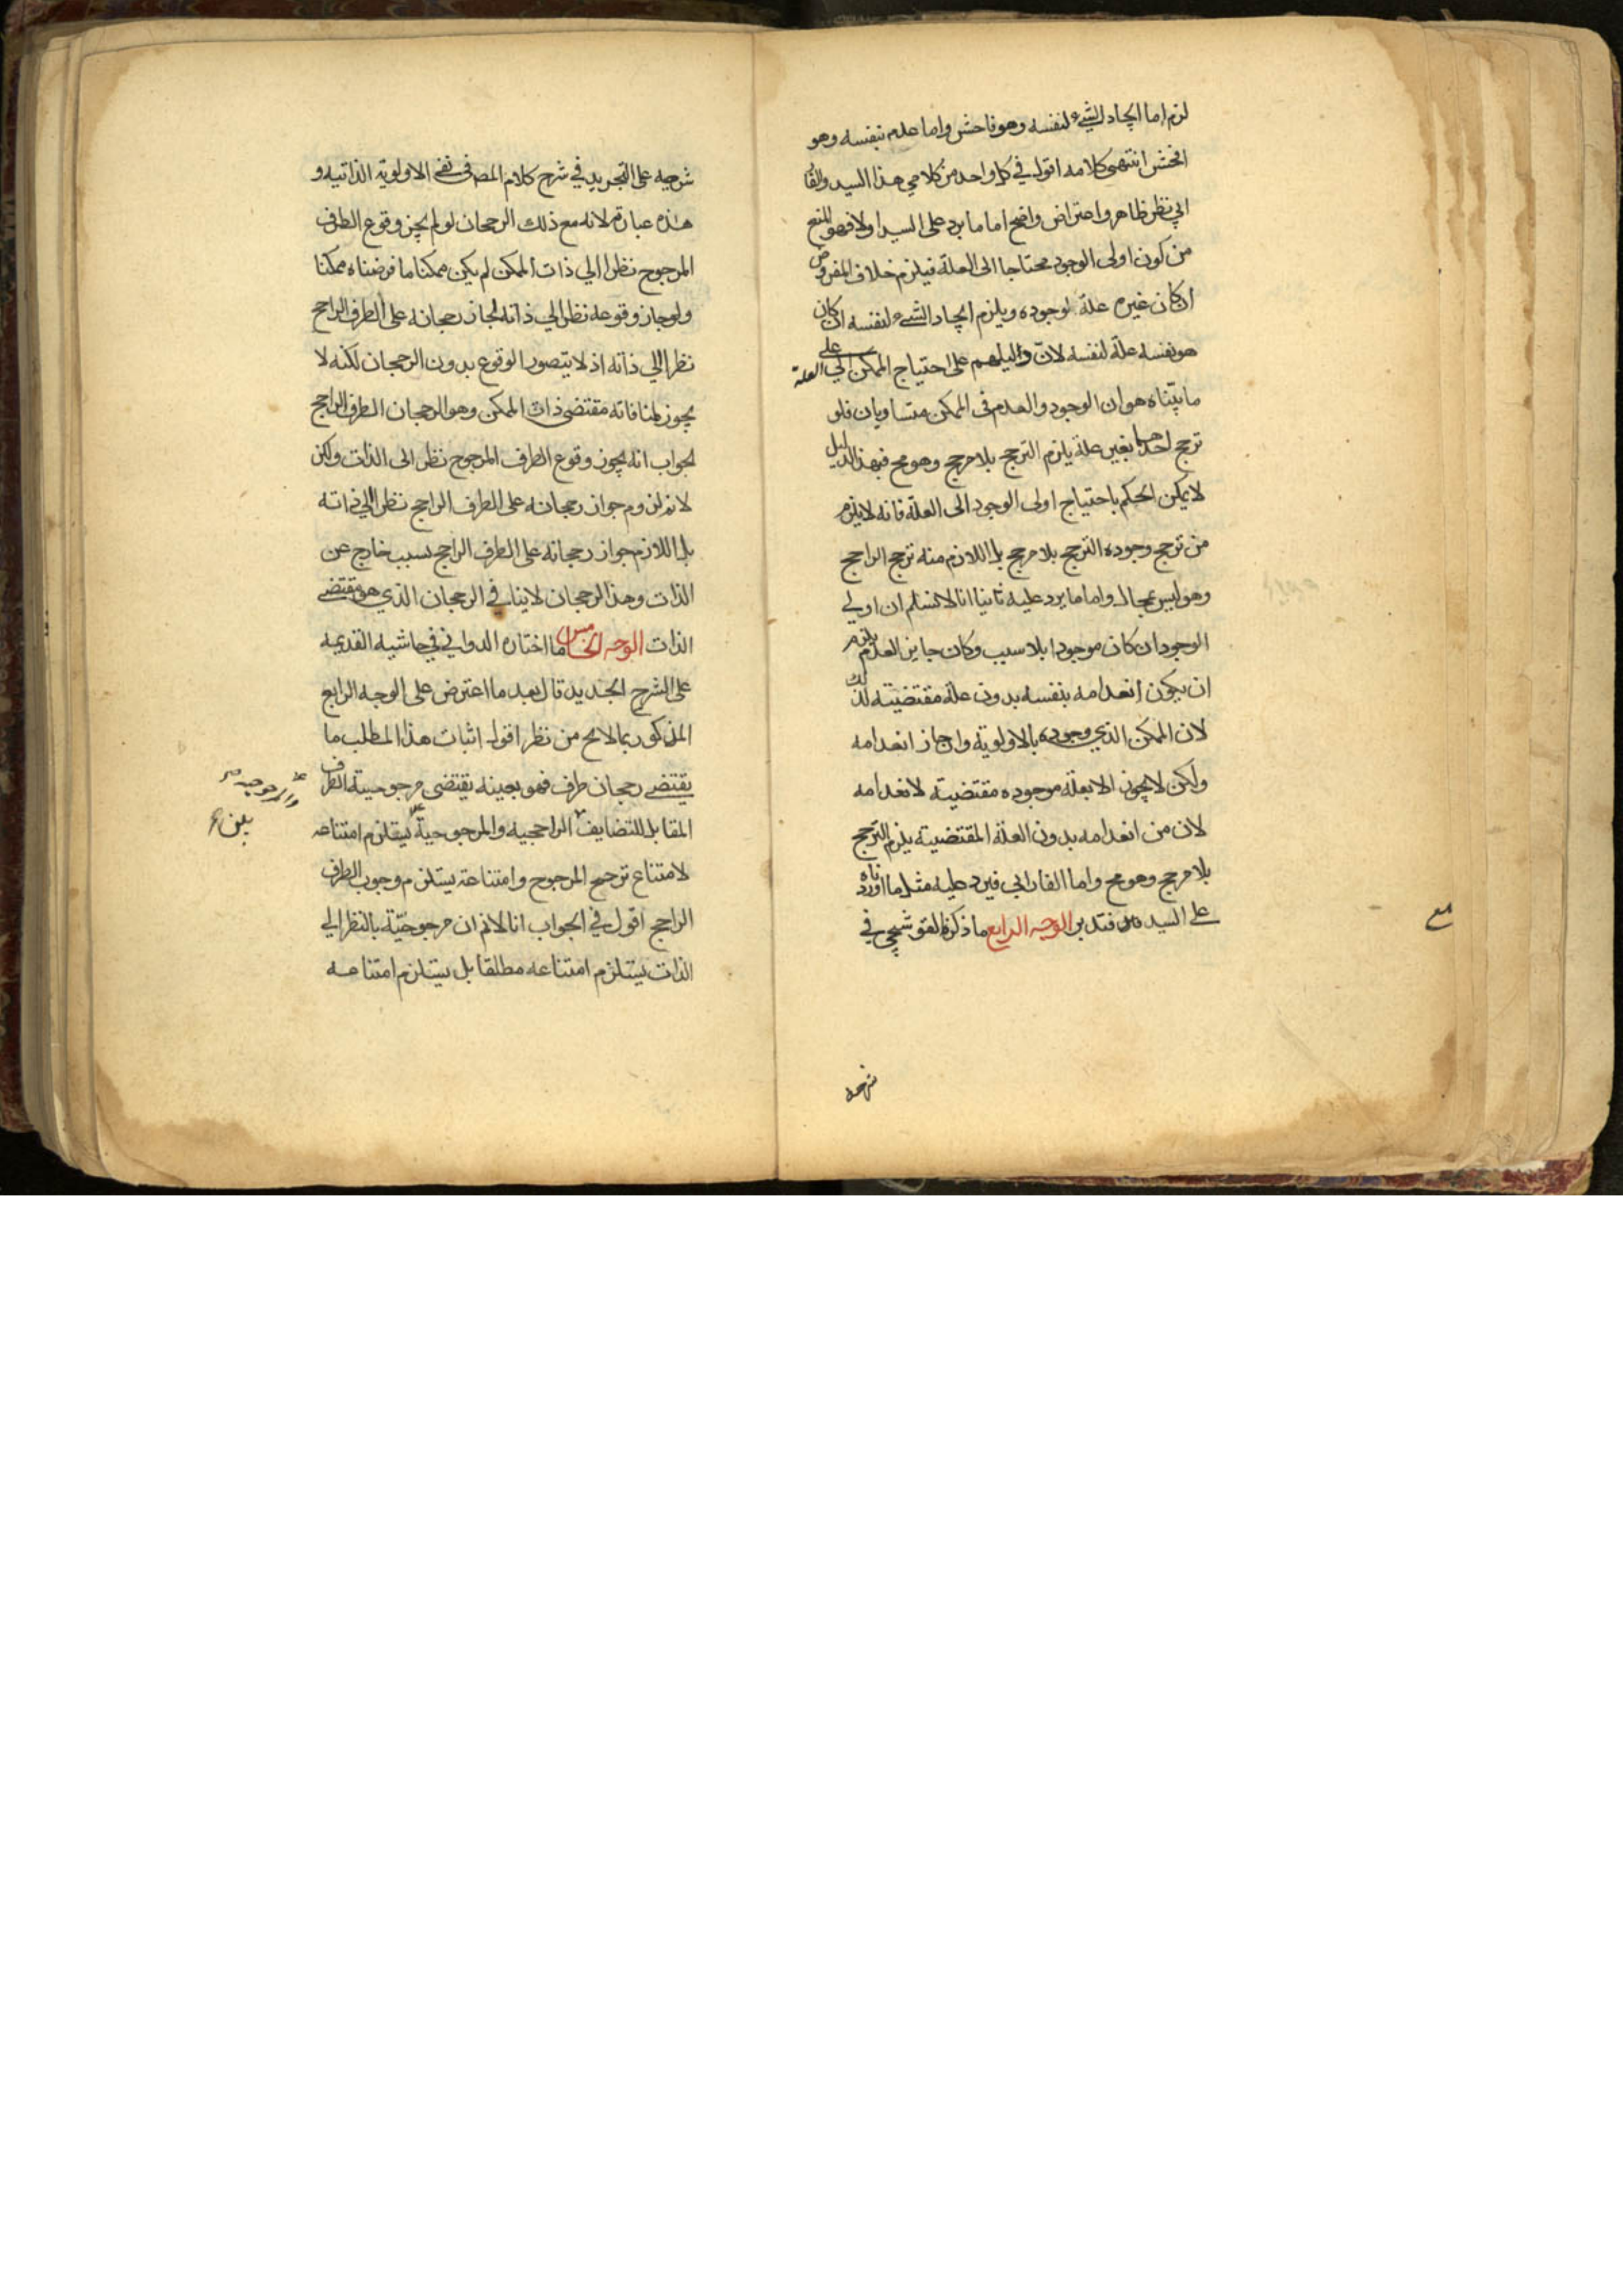 لزم اما ايجاد الشيء لنفسه وهو فاحش واما علم بنفسه وهو
افحش انتهى كلامه اقول في كل واحد من كلامي هذا السيد والفا
رابي نظر ظاهر واعتراض واضح اما ما يرد على السيد اولا فهو المنع
من كون اولى الوجود محتاجا الى العلة فيلزم خلاف المفروض
ان كان غيره علة لوجوده ويلزم ايجاد الشيء لنفسه ان كان
هو نفسه علة لنفسه لان دليلهم على احتياج الممكن الي العلة على
ما بيناه هو ان الوجود والعدم في الممكن متساويان فلو
ترجح احدهما بغير علة يلزم الترجح بلا مرجح وهو مح فبهذا الدليل
لا يمكن الحكم باحتياج اولى الوجود الى العلة فانه لا يلزم
من ترجح وجوده الترجح بلا مرجح بل اللازم منه ترجح الراجح
وهو ليس بمحال واما ما يرد عليه ثانيا انا لا نسلم ان اولي
الوجود ان كان موجودا بلا سبب وكان جايز العدم يلزم
ان يكون انعدامه بنفسه بدون علة مقتضيته لذلك
لان الممكن الذي وجوده بالاولوية وان جاز انعدامه
ولكن لا يجوز الا بعلة موجوده مقتضيته لانعدامه
لان من انعدامه بدون العلة المقتضيته يلزم الترجح
بلا مرجح وهو مح واما الفارابي فيرد عليه مثل ما اوردناه
على السيد فتدبر الوجه الرابع ما ذكره القوشجي في
شرحه
شرحه على التجريد في شرح كلام المصـ في نفي الاولوية الذاتيه و
هذه عبارته لانه مع ذلك الرجحان لو لم يجز وقوع الطرف
المرجوح نظرا الي ذات الممكن لم يكن ممكنا ما فرضناه ممكنا
ولو جاز وقوعه نظرا الي ذاته لجاز رجحانه على الطرف الراجح
نظرا الي ذاته اذ لا يتصور الوقوع بدون الرجحان لكنه لا
يجوز لمنافاته مقتضى ذات الممكن وهو الرجحان الطرف الراجح
لجواب انه يجوز وقوع الطرف المرجوح نظر الى الذات ولكن
لا نم لزوم جواز رجحانه على الطرف الراجح نظرا الي ذاته
بل اللازم جواز رجحانه على الطرف الراجح بسبب خارج عن
الذات وهذا الرجحان لا ينافي الرجحان الذي هو مقتضي
الذات الوجه الخامس ما اختاره الدواني في حاشيه القديمه
على الشرح الجديد قال بعد ما اعترض على الوجه الرابع
المذكور بما لا يخ من نظر اقول اثبات هذا المطلب ما
يقتضي رجحان طرف فهو بعينه يقتضى مرجوحيته الطرف
المقابل للتضايف الراجحيه والمرجوحية يستلزم امتناعه
لامتناع ترجيح المرجوح وامتناعه يستلزم وجوب الطرف
الراجح اقول في الجواب انا لا نم ان مرجوحيّة بالنظر الي
الذات يستلزم امتناعه مطلقا بل يستلزم امتناعه
والمرجوحيه
بين